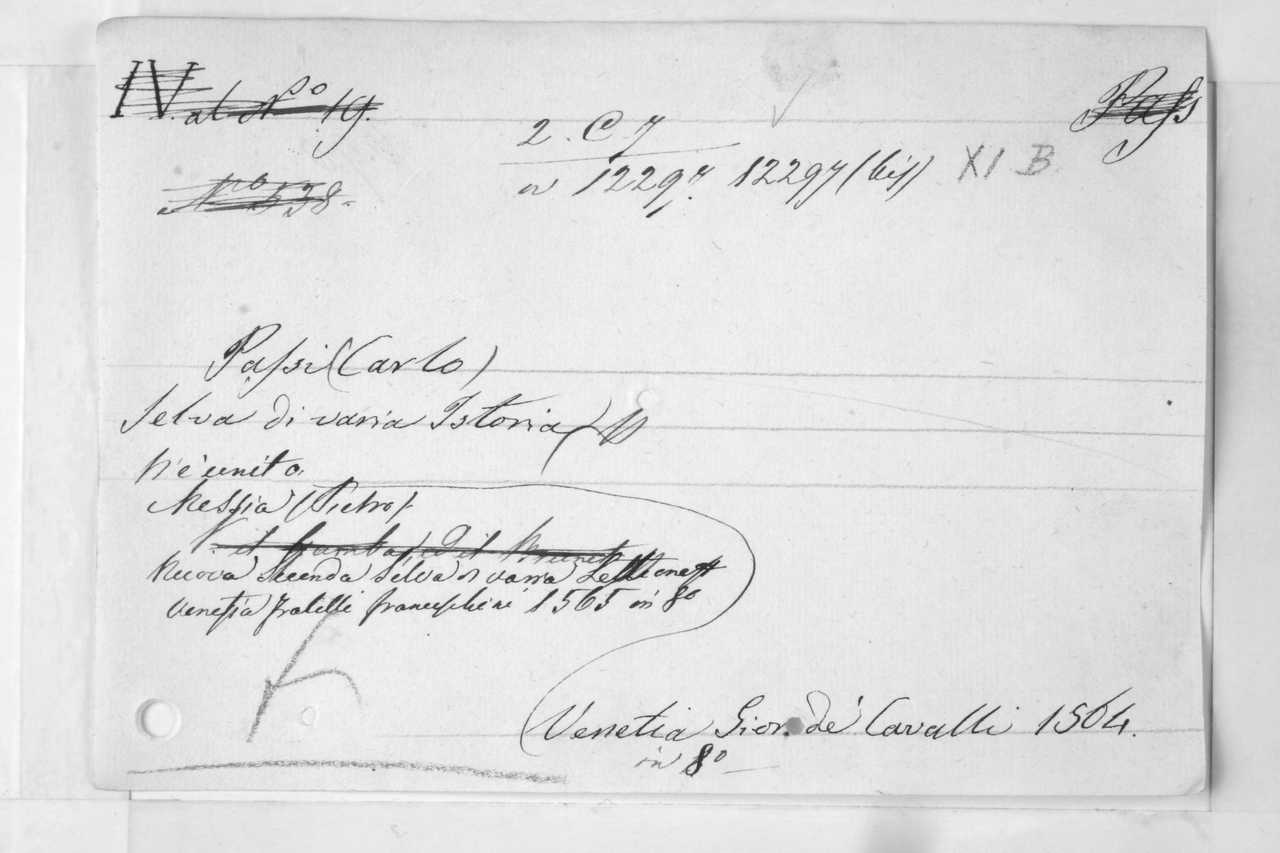 IV. al Nº 19.
Pass
2. C 7
Nro 538.
12297. 12297 (bis) XI B
Passi (Carlo)
Selva di varia Istoria
v'è unito.
Messia (Pietro)
Nuova Seconda Selva di varia Lettione
Venetia fratelli franceschini 1565 in 8º
Venetia Gior. de' Cavalli 1564.
in 8º